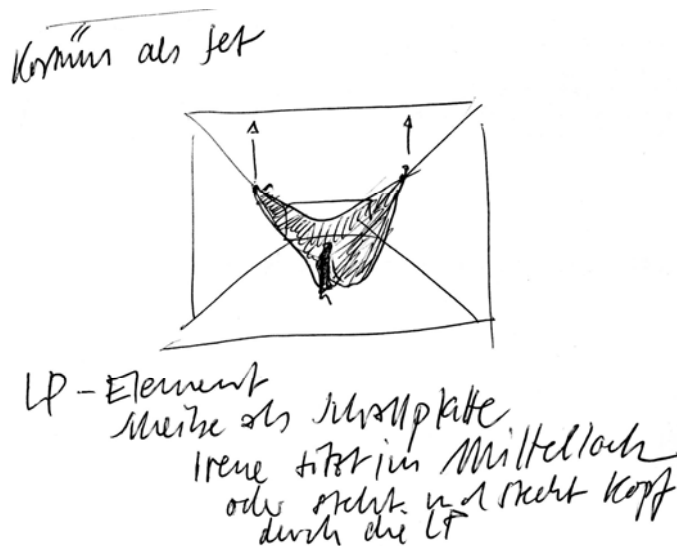 Kostüm als Set
LP-Element
Scheibe als Schallplatte
Irene sitzt im Mittelloch
oder steht und steckt Kopf
durch die LP